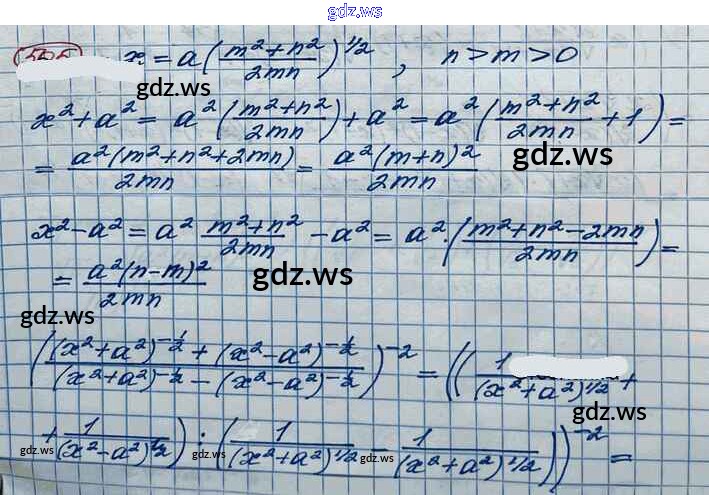 gdz.ws
x = a((m²+n²)/(2mn))^(1/2), n > m > 0
gdz.ws
x²+a² = a²((m²+n²)/(2mn)) + a² = a²((m²+n²)/(2mn) + 1) =
gdz.ws
= (a²(m²+n²+2mn))/(2mn) = (a²(m+n)²)/(2mn)
x²-a² = a² (m²+n²)/(2mn) - a² = a²·((m²+n²-2mn)/(2mn)) =
gdz.ws
= (a²(n-m)²)/(2mn)
gdz.ws
(((x²+a²)^(-1/2) + (x²-a²)^(-1/2))/((x²+a²)^(-1/2) - (x²-a²)^(-1/2)))^(-2) = ((1/((x²+a²)^(1/2)) +
gdz.ws
+ 1/((x²-a²)^(1/2))) : (1/((x²+a²)^(1/2)) - 1/((x²+a²)^(1/2))))^(-2) =
gdz.ws gdz.ws gdz.ws